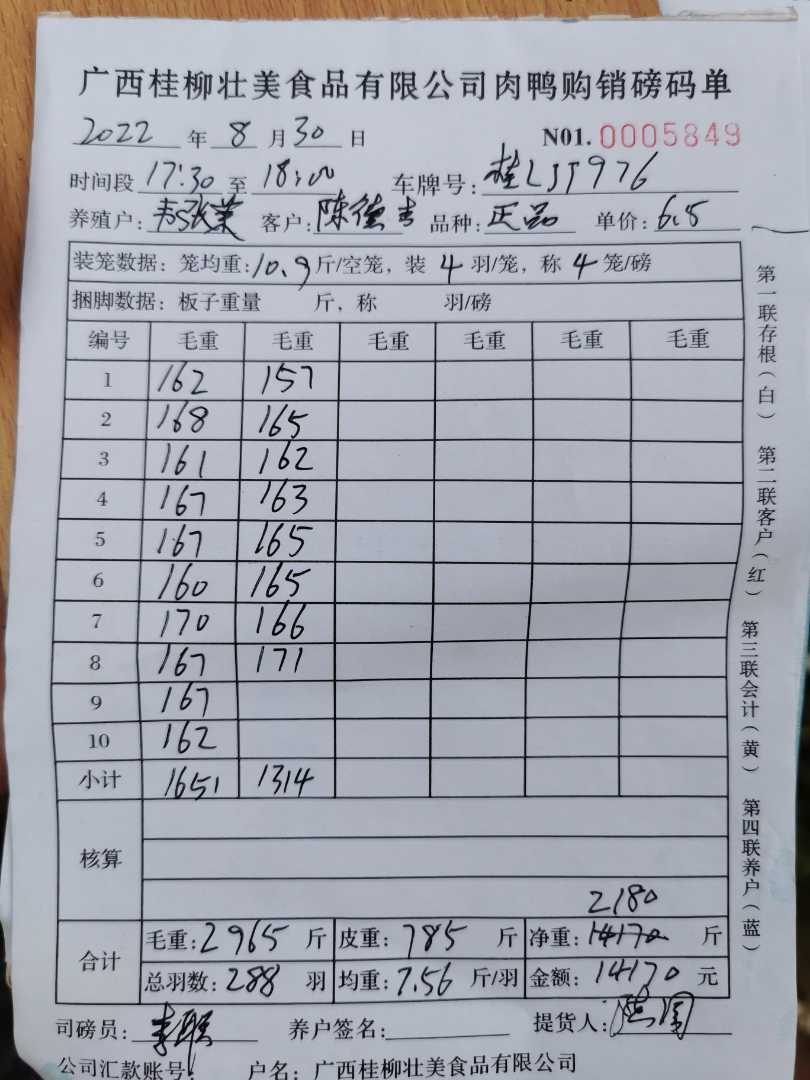 广西桂柳壮美食品有限公司肉鸭购销磅码单
2022 年 8 月 30 日 N01. 0005849
时间段 17:30 至 18:00 车牌号: 桂LJT976
养殖户: 客户: 陈德吉 品种: 正品 单价: 6.5
装笼数据: 笼均重: 10.9 斤/空笼, 装 4 羽/笼, 称 4 笼/磅
捆脚数据: 板子重量 斤, 称 羽/磅
编号 毛重 毛重 毛重 毛重 毛重 毛重
1 162 157
2 168 165
3 161 162
4 167 163
5 167 165
6 160 165
7 170 166
8 167 171
9 167
10 162
小计 1651 1314
核算
2180
合计 毛重: 2965 斤 皮重: 785 斤 净重: 14170 斤
总羽数: 288 羽 均重: 7.56 斤/羽 金额: 14170 元
司磅员: 养户签名: 提货人:
公司汇款账号: 户名: 广西桂柳壮美食品有限公司
第一联存根(白) 第二联客户(红) 第三联会计(黄) 第四联养户(蓝)